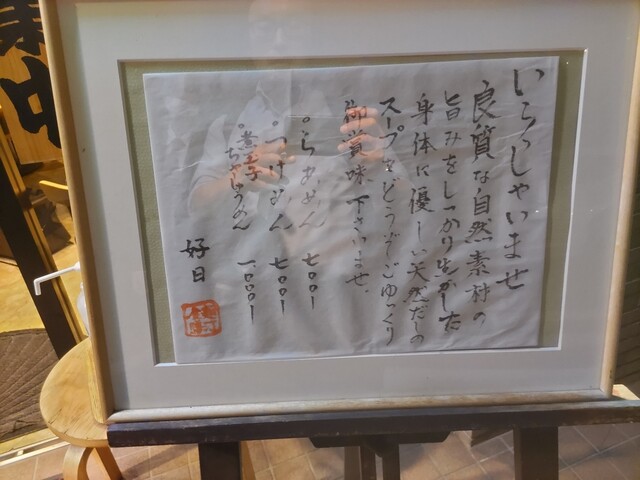 いらっしゃいませ
良質な自然素材の
旨みをしっかり生かした
身体に優しい天然だしの
スープをどうぞごゆっくり
御賞味下さいませ
。らあめん 七〇〇ー
。つけめん 七〇〇ー
。煮玉子
ちゃしゅうめん 一、〇〇〇ー
好日